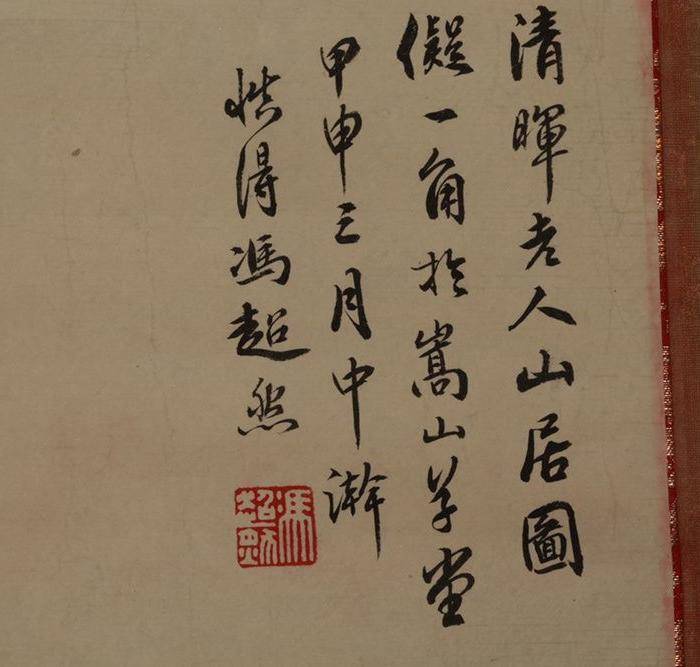 清暉老人山居圖
儗一角於嵩山草堂
甲申三月中澣
慎得馮超然
馮超然